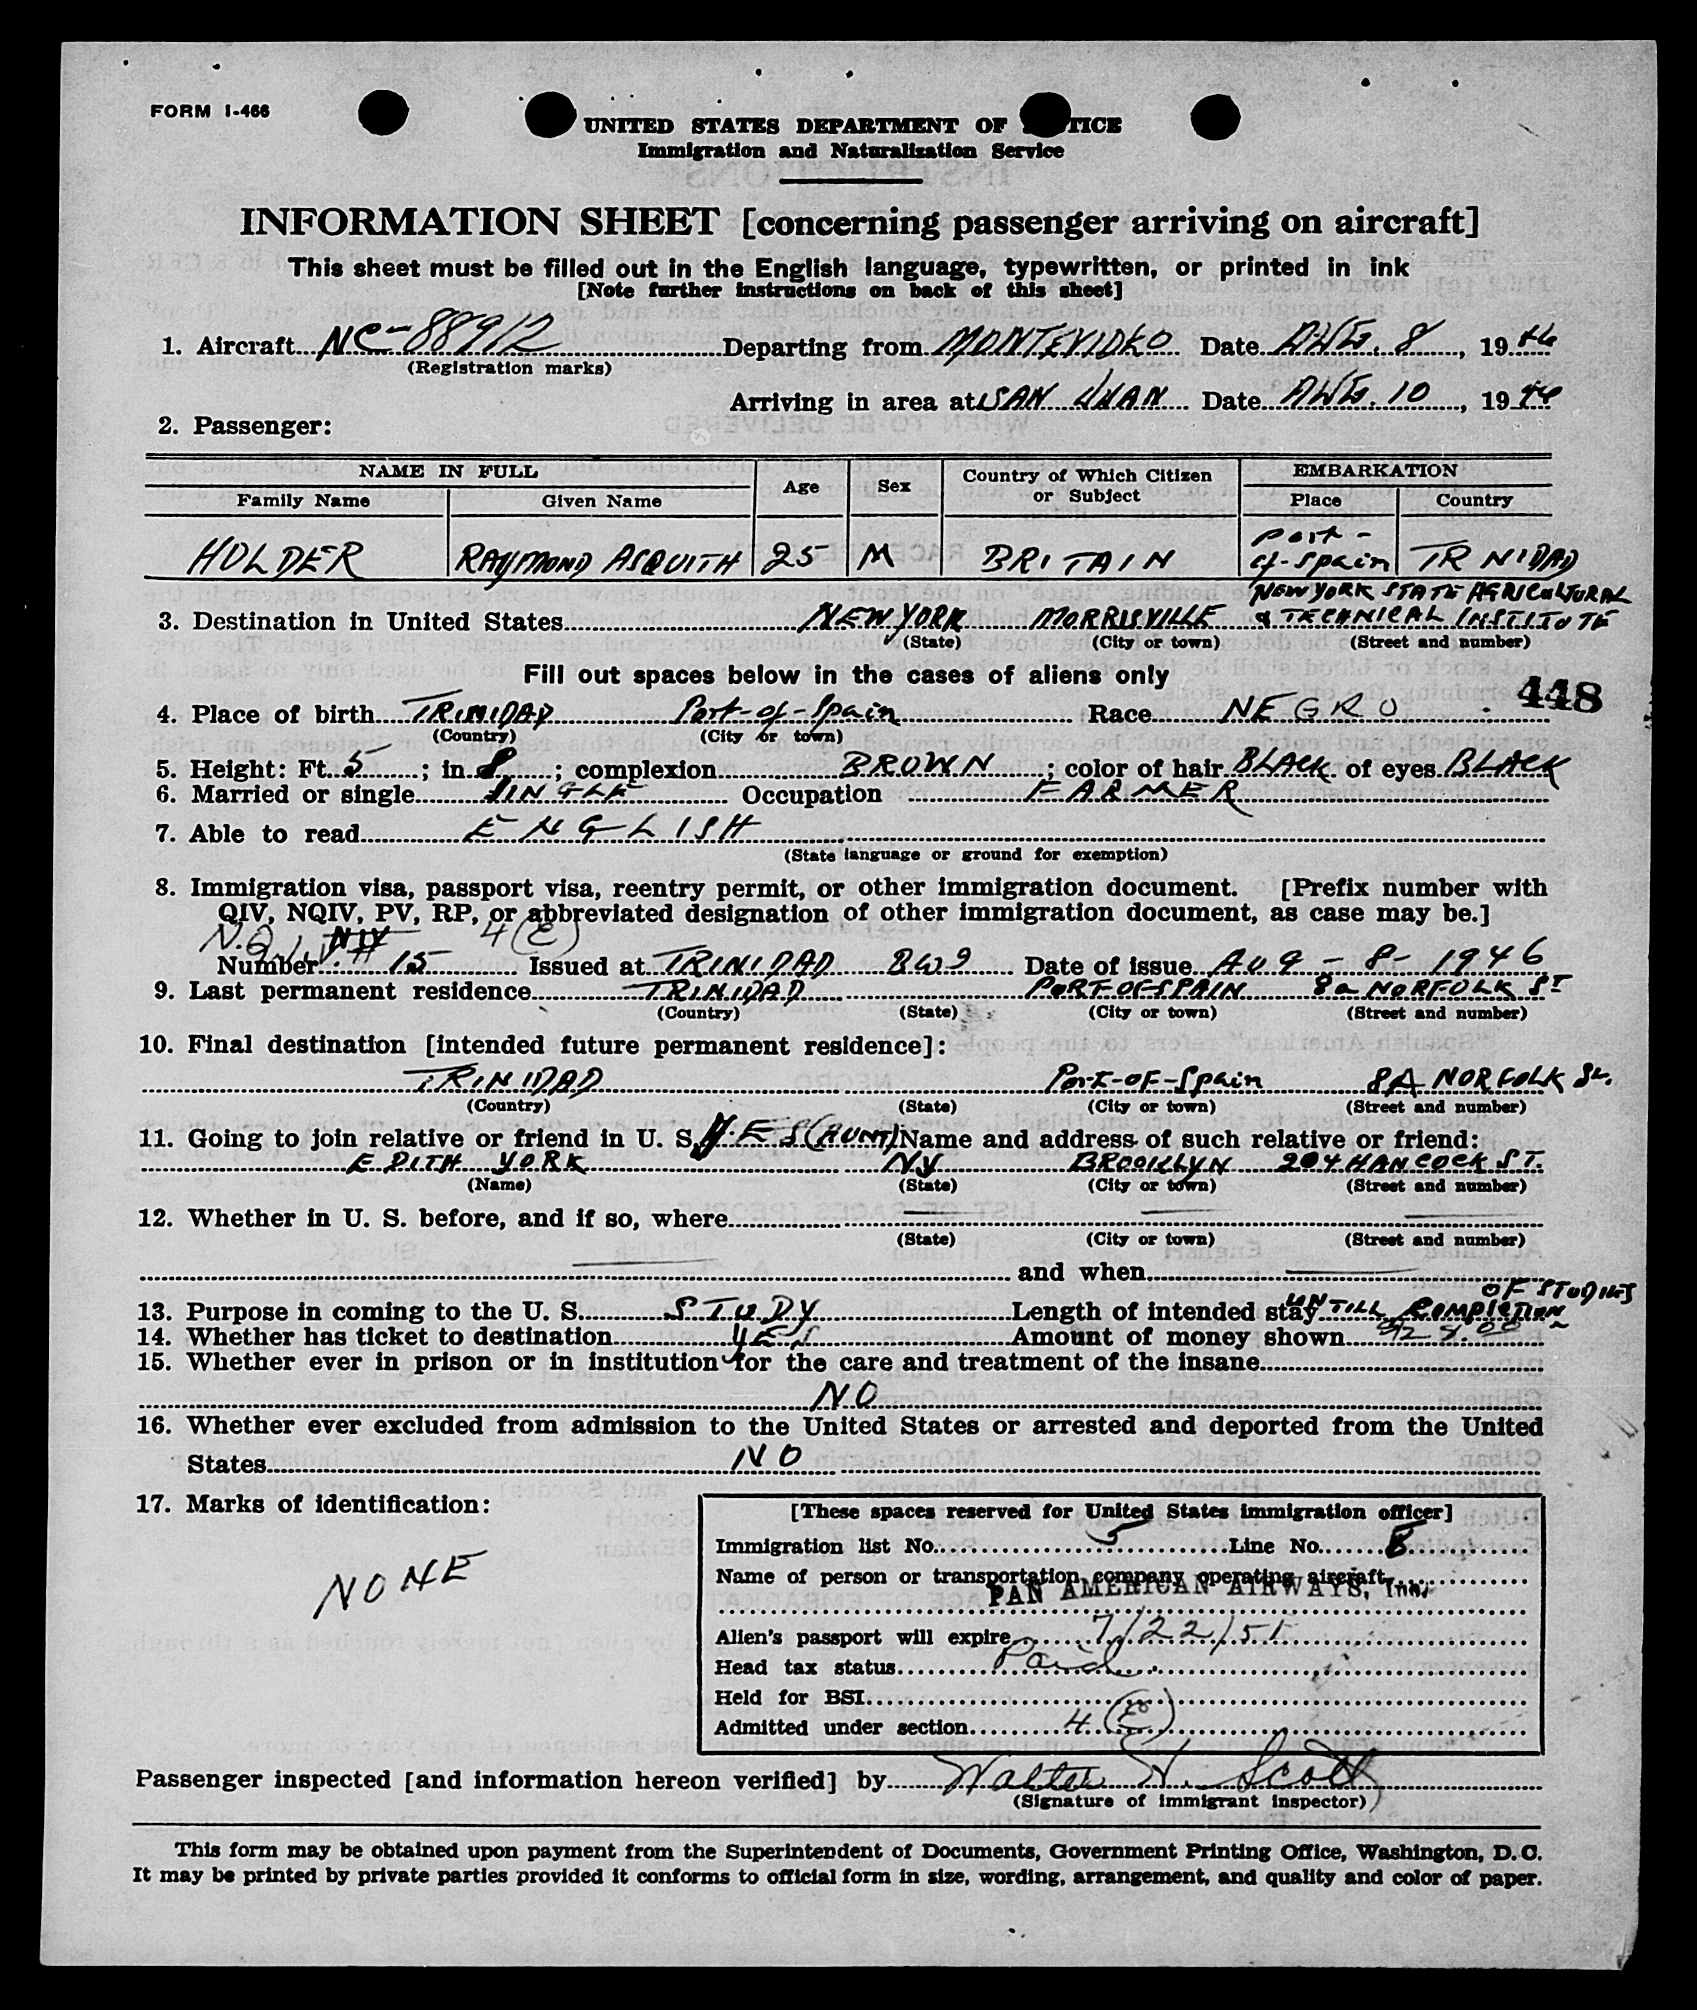 FORM I-466
UNITED STATES DEPARTMENT OF TICE
Immigration and Naturalization Service
INFORMATION SHEET [concerning passenger arriving on aircraft]
This sheet must be filled out in the English language, typewritten, or printed in ink
[Note further instructions on back of this sheet]
1. Aircraft NC-88912 Departing from MONTEVIDEO Date AUG. 8, 1946
(Registration marks)
Arriving in area at SAN JUAN Date AUG. 10, 1946
2. Passenger:
NAME IN FULL Age Sex Country of Which Citizen or Subject EMBARKATION
Family Name Given Name Place Country
HOLDER RAYMOND ASQUITH 25 M BRITAIN Port-of-Spain TRNIDAD
NEW YORK STATE AGRICULTURAL
3. Destination in United States NEW YORK MORRISVILLE & TECHNICAL INSTITUTE
(State) (City or town) (Street and number)
Fill out spaces below in the cases of aliens only
448
4. Place of birth TRINIDAD Port-of-Spain Race NEGRO
(Country) (City or town)
5. Height: Ft. 5; in. 8; complexion BROWN; color of hair BLACK of eyes BLACK
6. Married or single SINGLE Occupation FARMER
7. Able to read ENGLISH
(State language or ground for exemption)
8. Immigration visa, passport visa, reentry permit, or other immigration document. [Prefix number with
QIV, NQIV, PV, RP, or abbreviated designation of other immigration document, as case may be.]
N.Q.I.V. NIV 4(E)
Number # 15 Issued at TRINIDAD BWI Date of issue AUG - 8 - 1946
9. Last permanent residence TRINIDAD PORT OF SPAIN 8a NORFOLK ST
(Country) (State) (City or town) (Street and number)
10. Final destination [intended future permanent residence]:
TRINIDAD Port-OF-Spain 8A NORFOLK St.
(Country) (State) (City or town) (Street and number)
11. Going to join relative or friend in U. S. YES (AUNT) Name and address of such relative or friend:
EDITH YORK NY BROOKLYN 204 HANCOCK ST.
(Name) (State) (City or town) (Street and number)
12. Whether in U. S. before, and if so, where
(State) (City or town) (Street and number)
and when
OF STUDIES
13. Purpose in coming to the U. S. STUDY Length of intended stay UNTILL COMPLETION
14. Whether has ticket to destination YES Amount of money shown
15. Whether ever in prison or in institution for the care and treatment of the insane
NO
16. Whether ever excluded from admission to the United States or arrested and deported from the United
States NO
17. Marks of identification:
NONE
[These spaces reserved for United States immigration officer]
Immigration list No. 5 Line No. 8
Name of person or transportation company operating aircraft
PAN AMERICAN AIRWAYS, Inc.
Alien's passport will expire 7/22/51
Head tax status Paid
Held for BSI
Admitted under section 4 (E)
Passenger inspected [and information hereon verified] by Walter H. Scott
(Signature of immigrant inspector)
This form may be obtained upon payment from the Superintendent of Documents, Government Printing Office, Washington, D. C.
It may be printed by private parties provided it conforms to official form in size, wording, arrangement, and quality and color of paper.